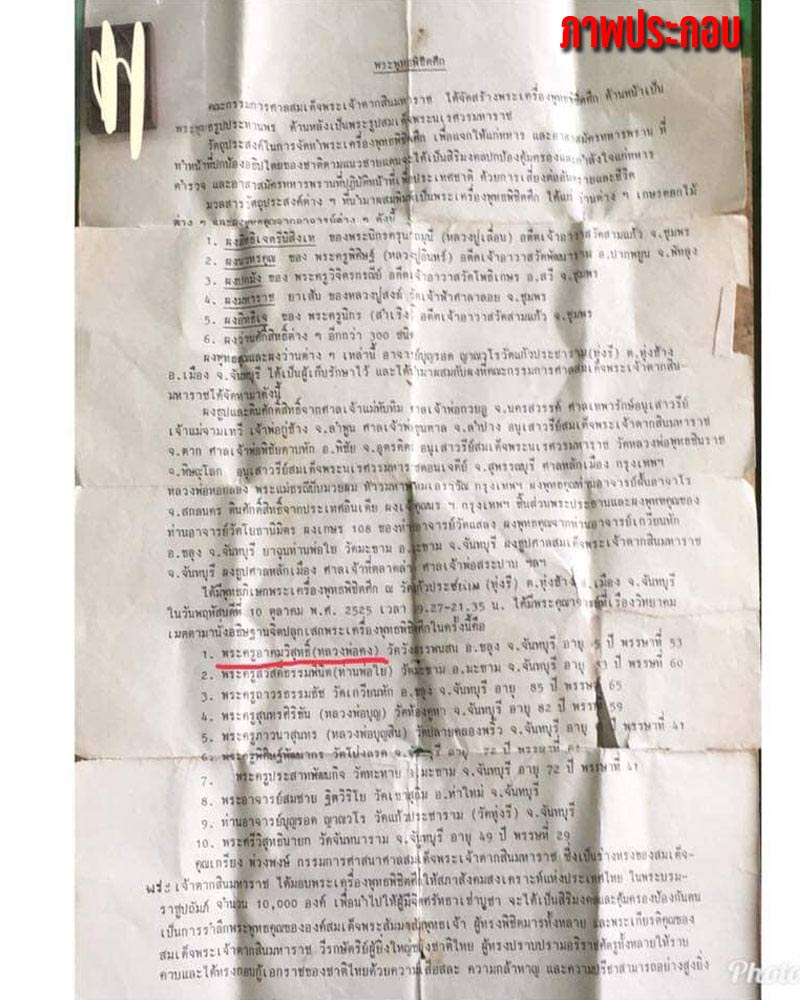 ภาพประกอบ
พระพุทธพิชิตศึก
คณะกรรมการศาลสมเด็จพระเจ้าตากสินมหาราช ได้จัดสร้างพระเครื่องพุทธพิชิตศึก ด้านหน้าเป็น
พระพุทธรูปประทานพร ด้านหลังเป็นพระรูปสมเด็จพระนเรศวรมหาราช
วัตถุประสงค์ในการจัดทำพระเครื่องพุทธพิชิตศึก เพื่อแจกให้แก่ทหาร และอาสาสมัครทหารพราน ที่
ทำหน้าที่ปกป้องอธิปไตยของชาติตามแนวชายแดนจะได้เป็นสิริมงคลปกป้องคุ้มครองและกำลังใจแก่ทหาร
ตำรวจ และอาสาสมัครทหารพรานที่ปฏิบัติหน้าที่เพื่อประเทศชาติ ด้วยการเสี่ยงต่ออันตรายและชีวิต
มวลสารวัตถุประสงค์ต่าง ๆ ที่นำมาผสมพิมพ์เป็นพระเครื่องพุทธพิชิตศึก ได้แก่ ว่านต่าง ๆ เกษรดอกไม้
ต่าง ๆ และผงพุทธคุณจากอาจารย์ต่าง ๆ ดังนี้
1. ผงอิทธิเจตรีนิสิงเห ของพระนิกรครุนาถมุนี (หลวงปู่เลื่อน) อดีตเจ้าอาวาสวัดสามแก้ว จ.ชุมพร
2. ผงนวหรคุณ ของ พระครูพิศิษฐ์ (หลวงปู่อินทร์) อดีตเจ้าอาวาสวัดพัฒนาราม อ.ปากพยูน จ.พัทลุง
3. ผงปถมัง ของ พระครูวิจิตรกรณีย์ อดีตเจ้าอาวาสวัดโพธิเกษร อ.สวี จ.ชุมพร
4. ผงมหาราช ยาเส้น ของหลวงปู่สงฆ์ วัดเจ้าฟ้าศาลาลอย จ.ชุมพร
5. ผงอิทธิเจ ของ พระครูนิกร (สำเริง) อดีตเจ้าอาวาสวัดสามแก้ว จ.ชุมพร
6. ผงว่านศักดิ์สิทธิ์ต่าง ๆ อีกกว่า 300 ชนิด
ผงพุทธคุณและผงว่านต่าง ๆ เหล่านี้ อาจารย์บุญรอด ญาณวโรวัดแก้วประชาราม(ทุ่งรี) ต.ทุ่งช้าง
อ.เมือง จ.จันทบุรี ได้เป็นผู้เก็บรักษาไว้ และได้นำมาผสมกับผงที่คณะกรรมการศาลสมเด็จพระเจ้าตากสิน-
มหาราชได้จัดหามาดังนี้
ผงธูปและดินศักดิ์สิทธิ์จากศาลเจ้าแม่ทับทิม ศาลเจ้าพ่อกวยอู จ.นครสวรรค์ ศาลเทพารักษ์อนุเสาวรีย์
เจ้าแม่จามเทวี เจ้าพ่อกู่ช้าง จ.ลำพูน ศาลเจ้าพ่อขุนตาล จ.ลำปาง อนุเสาวรีย์สมเด็จพระเจ้าตากสินมหาราช
จ.ตาก ศาลเจ้าพ่อพิชัยดาบหัก อ.พิชัย จ.อุตรดิตถ์ อนุเสาวรีย์สมเด็จพระนเรศวรมหาราช วัดหลวงพ่อพุทธชินราช
จ.พิษณุโลก อนุเสาวรีย์สมเด็จพระนเรศวรมหาราชดอนเจดีย์ จ.สุพรรณบุรี ศาลหลักเมือง กรุงเทพฯ
หลวงพ่อหอกลอง พระแม่ธรณีบีบมวยผม ท้าวมหาพรหมเอราวัณ กรุงเทพฯ ผงพุทธคุณท่านอาจารย์ฝั้นอาจาโร
จ.สกลนคร ดินศักดิ์สิทธิ์จากประเทศอินเดีย ผงเจ้าคุณนร ฯ กรุงเทพฯ ชิ้นส่วนพระประธานและผงพุทธคุณของ
ท่านอาจารย์วัดโยธานิมิตร ผงเกษร 108 ของท่านอาจารย์วัดแสลง ผงพุทธคุณจากท่านอาจารย์เกวียนหัก
อ.ขลุง จ.จันทบุรี ยาฉุนท่านพ่อใย วัดมะขาม อ.มะขาม จ.จันทบุรี ผงธูปศาลสมเด็จพระเจ้าตากสินมหาราช
จ.จันทบุรี ผงธูปศาลหลักเมือง ศาลเจ้าที่ตลาดล่าง ศาลเจ้าพ่อสระบาป ฯลฯ
ได้มีพุทธาภิเษกพระเครื่องพุทธพิชิตศึก ณ วัดแก้วประชาราม (ทุ่งรี) ต.ทุ่งช้าง อ.เมือง จ.จันทบุรี
ในวันพฤหัสบดีที่ 10 ตุลาคม พ.ศ. 2525 เวลา 9.27-21.35 น. ได้มีพระคุณาจารย์ที่เรืองวิทยาคม
เมตตามานั่งอธิษฐานจิตปลุกเสกพระเครื่องพุทธพิชิตศึกในครั้งนี้คือ
1. พระครูอาคมวิสุทธิ์(หลวงพ่อคง) วัดวังสรรพรส อ.ขลุง จ.จันทบุรี อายุ 5 ปี พรรษาที่ 53
2. พระครูสวัสดิ์ธรรมพินิต(ท่านพ่อใย) วัดมะขาม อ.มะขาม จ.จันทบุรี อายุ 3 ปี พรรษาที่ 60
3. พระครูถาวรธรรมธัช วัดเกวียนหัก อ.ขลุง จ.จันทบุรี อายุ 85 ปี พรรษาที่ 65
4. พระครูสุนทรศิริขัน (หลวงพ่อบุญ) วัดท้องคุหา จ.จันทบุรี อายุ 82 ปี พรรษาที่ 59
5. พระครูภาวนาสุนทร (หลวงพ่อบุญสิน) วัดปลายคลองพริ้ว จ.จันทบุรี อายุ ปี พรรษาที่ 41
6. พระครูพิศิษฐ์พัฒนากร จ.จันทบุรี อายุ 72 ปี พรรษาที่
7. พระครูประสาทพัฒนกิจ วัดทะทาย อ.มะขาม จ.จันทบุรี อายุ 72 ปี พรรษาที่ 41
8. พระอาจารย์สมชาย ฐิตวิริโย วัดเขาสุกิม อ.ท่าใหม่ จ.จันทบุรี
9. ท่านอาจารย์บุญรอด ญาณวโร วัดแก้วประชาราม (วัดทุ่งรี) จ.จันทบุรี
10. พระศรีวิสุทธินายก วัดจันทนาราม จ.จันทบุรี อายุ 49 ปี พรรษาที่ 29
คุณเกรียง ห่วงพงษ์ กรรมการศาสนาศาลสมเด็จพระเจ้าตากสินมหาราช ซึ่งเป็นร่างทรงของสมเด็จ-
พระเจ้าตากสินมหาราช ได้มอบพระเครื่องพุทธพิชิตศึกให้สภาสังคมสงเคราะห์แห่งประเทศไทย ในพระบรม-
ราชูปถัมภ์ จำนวน 10,000 องค์ เพื่อนำไปให้ผู้มีจิตศรัทธาเช่าบูชา จะได้เป็นสิริมงคลและคุ้มครองป้องกันตน
เป็นการรำลึกพระพุทธคุณขององค์สมเด็จพระสัมมาสัมพุทธเจ้า ผู้ทรงพิชิตมารทั้งหลาย และพระเกียรติคุณของ
สมเด็จพระเจ้าตากสินมหาราช วีรกษัตริย์ผู้ยิ่งใหญ่ของชาติไทย ผู้ทรงปราบปรามอริราชศัตรูทั้งหลายให้ราบ
คาบและได้ทรงกอบกู้เอกราชของชาติไทยด้วยความเสียสละ ความกล้าหาญ และความปรีชาสามารถอย่างสูงยิ่ง
Photo